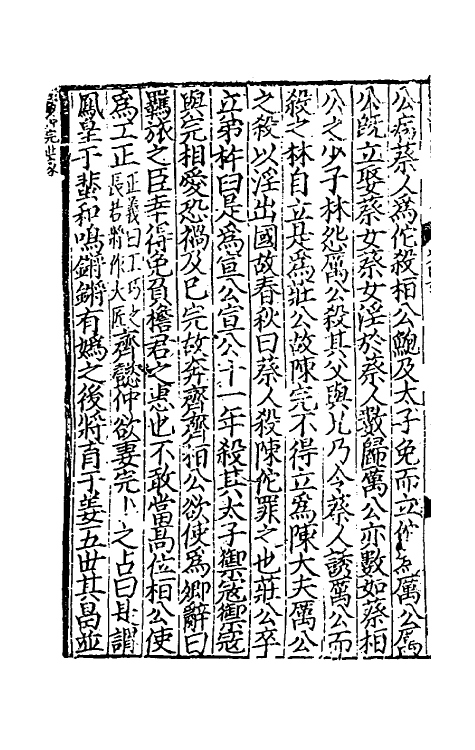 公病蔡人為佗殺桓公鮑及太子免而立佗為厲公厲
公既立娶蔡女蔡女淫於蔡人數歸厲公亦數如蔡桓
公之少子林怨厲公殺其父與兄乃令蔡人誘厲公而
殺之林自立是為莊公故陳完不得立為陳大夫厲公
之殺以淫出國故春秋曰蔡人殺陳佗罪之也莊公卒
立弟杵臼是為宣公宣公十一年殺其太子禦寇禦寇
與完相愛恐禍及己完故奔齊齊桓公欲使為卿辭曰
羈旅之臣幸得免負檐君之惠也不敢當高位桓公使
為工正正義曰工巧之長若將作大匠齊懿仲欲妻完卜之占曰是謂
鳳皇于蜚和鳴鏘鏘有媯之後將育于姜五世其昌並